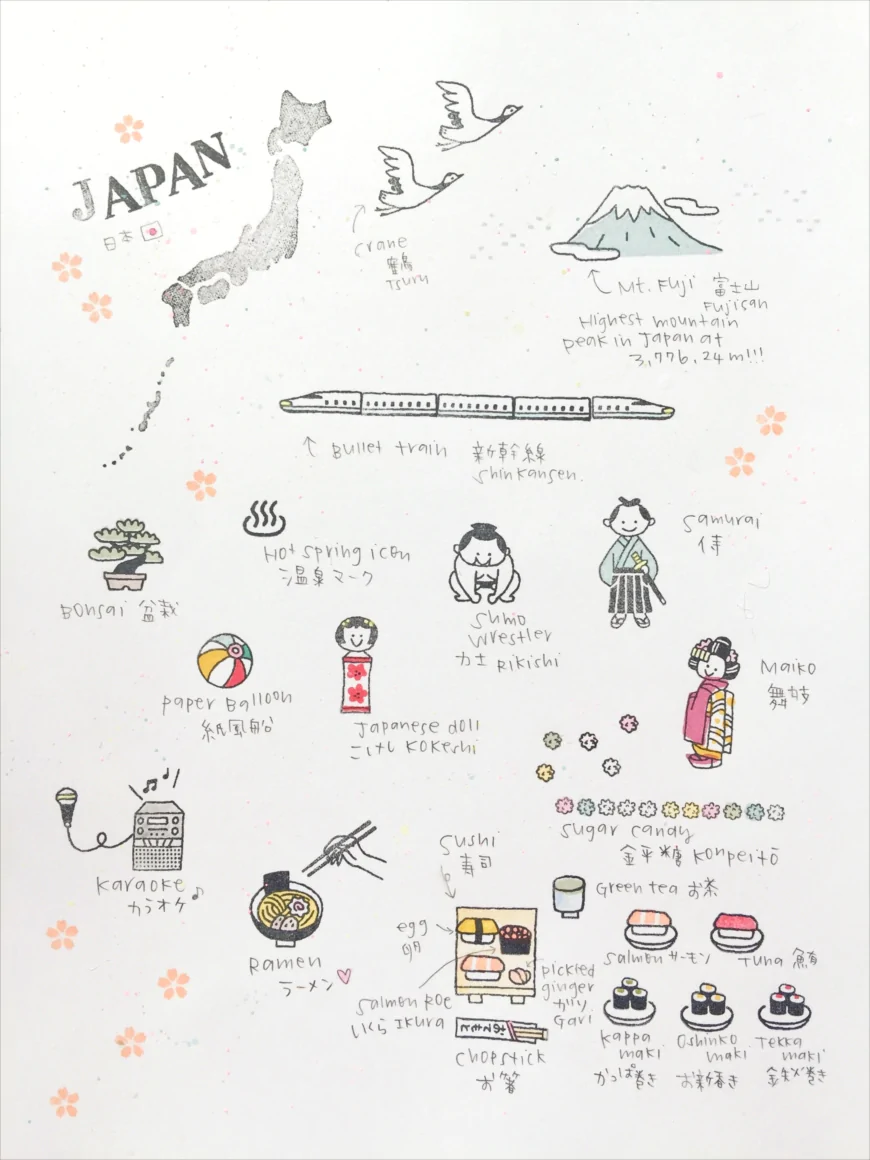 JAPAN
日本
crane
鶴
Tsuru
Mt. Fuji 富士山
Fujisan
Highest mountain
peak in Japan at
3,776.24m!!!
Bullet train 新幹線
Shinkansen.
Hot spring icon
温泉マーク
Bonsai 盆栽
Sumo
Wrestler
力士 Rikishi
Samurai
侍
paper Balloon
紙風船
Japanese doll
こけし Kokeshi
Maiko
舞妓
sugar candy
金平糖 Konpeitō
Karaoke
カラオケ
Ramen
ラーメン
Sushi
寿司
egg
Salmon Roe
いくら Ikura
pickled
ginger
ガリ
Gari
おてもと
Chopstick
お箸
Green tea お茶
Salmon サーモン
Tuna 鮪
Kappa
maki
かっぱ巻き
Oshinko
maki
お新香き
Tekka
maki